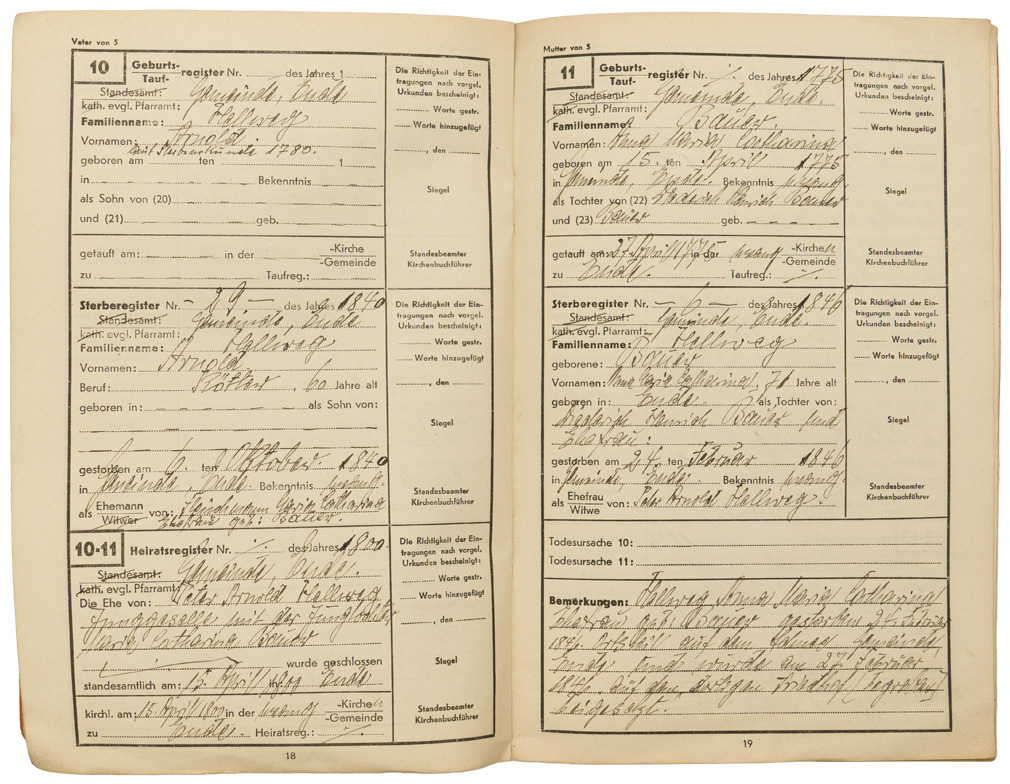 Vater von 5
10
Geburts-
Tauf-
register Nr. des Jahres 1
Standesamt: Gemeinde, Ende
kath. evgl. Pfarramt:
Familienname: Hallweg
Vornamen: Arnold.
laut Sterbeurkunde 1780.
geboren am ten 1
in Bekenntnis
als Sohn von (20)
und (21) geb.
Die Richtigkeit der Ein-
tragungen nach vorgel.
Urkunden bescheinigt:
Worte gestr.
Worte hinzugefügt
, den
Siegel
getauft am: in der -Kirche
-Gemeinde
zu Taufreg.:
Standesbeamter
Kirchenbuchführer
Sterberegister Nr. - 29 - des Jahres 1840
Standesamt: Gemeinde, Ende
kath. evgl. Pfarramt:
Familienname: Hallweg
Vornamen: Arnold
Beruf: Kötter, 60 Jahre alt
geboren in: als Sohn von:
gestorben am 6. ten Oktober. 1840
in Gemeinde, Ende. Bekenntnis evang.
als Ehemann
Witwer
von: Maria Catharina
Ehefrau geb: Bauer.
Die Richtigkeit der Ein-
tragungen nach vorgel.
Urkunden bescheinigt:
Worte gestr.
Worte hinzugefügt
, den
Siegel
Standesbeamter
Kirchenbuchführer
10-11
Heiratsregister Nr. ./. des Jahres 1800
Standesamt: Gemeinde, Ende.
kath. evgl. Pfarramt:
Die Ehe von: Peter Arnold Hallweg
Junggeselle mit der Jungfrau
Maria Catharina Bauer
wurde geschlossen
standesamtlich am: 15. April in Ende
kirchl. am: 15. April 1800 in der evang -Kirchen
-Gemeinde
zu Ende. Heiratsreg.: ./.
Die Richtigkeit der Ein-
tragungen nach vorgel.
Urkunden bescheinigt:
Worte gestr.
Worte hinzugefügt
, den
Siegel
Standesbeamter
Kirchenbuchführer
18
Mutter von 5
11
Geburts-
Tauf-
register Nr. ./. des Jahres 1775
Standesamt: Gemeinde, Ende.
kath. evgl. Pfarramt:
Familienname: Bauer.
Vornamen: Anna Maria Catharina
geboren am 15. ten April 1775
in Gemeinde, Ende. Bekenntnis evang.
als Tochter von (22) Diederich Heinrich Bauer
und (23) Bauer geb.
Die Richtigkeit der Ein-
tragungen nach vorgel.
Urkunden bescheinigt:
Worte gestr.
Worte hinzugefügt
, den
Siegel
getauft am: 27 April 1775 in der evang -Kirchen
-Gemeinde
zu Ende. Taufreg.: ./.
Standesbeamter
Kirchenbuchführer
Sterberegister Nr. - 6 - des Jahres 1846
Standesamt: Gemeinde, Ende.
kath. evgl. Pfarramt:
Familienname: Hallweg
geborene: Bauer
Vornamen: Anna Maria Catharina, 71 Jahre alt
geboren in: Ende. als Tochter von:
Diederich Heinrich Bauer und
Ehefrau:
gestorben am 24. ten Februar 1846
in Gemeinde, Ende Bekenntnis evang.
als Ehefrau
Witwe
von: Peter Arnold Hallweg.
Die Richtigkeit der Ein-
tragungen nach vorgel.
Urkunden bescheinigt:
Worte gestr.
Worte hinzugefügt
, den
Siegel
Standesbeamter
Kirchenbuchführer
Todesursache 10:
Todesursache 11:
Bemerkungen: Hallweg Anna Maria Catharina
Ehefrau geb: Bauer gestorben 24. Februar
1846. auf dem Gemeinde,
Ende und wurde am 27. Februar
1846. auf dem dortigen Friedhof (begraben)
beigesetzt.
19